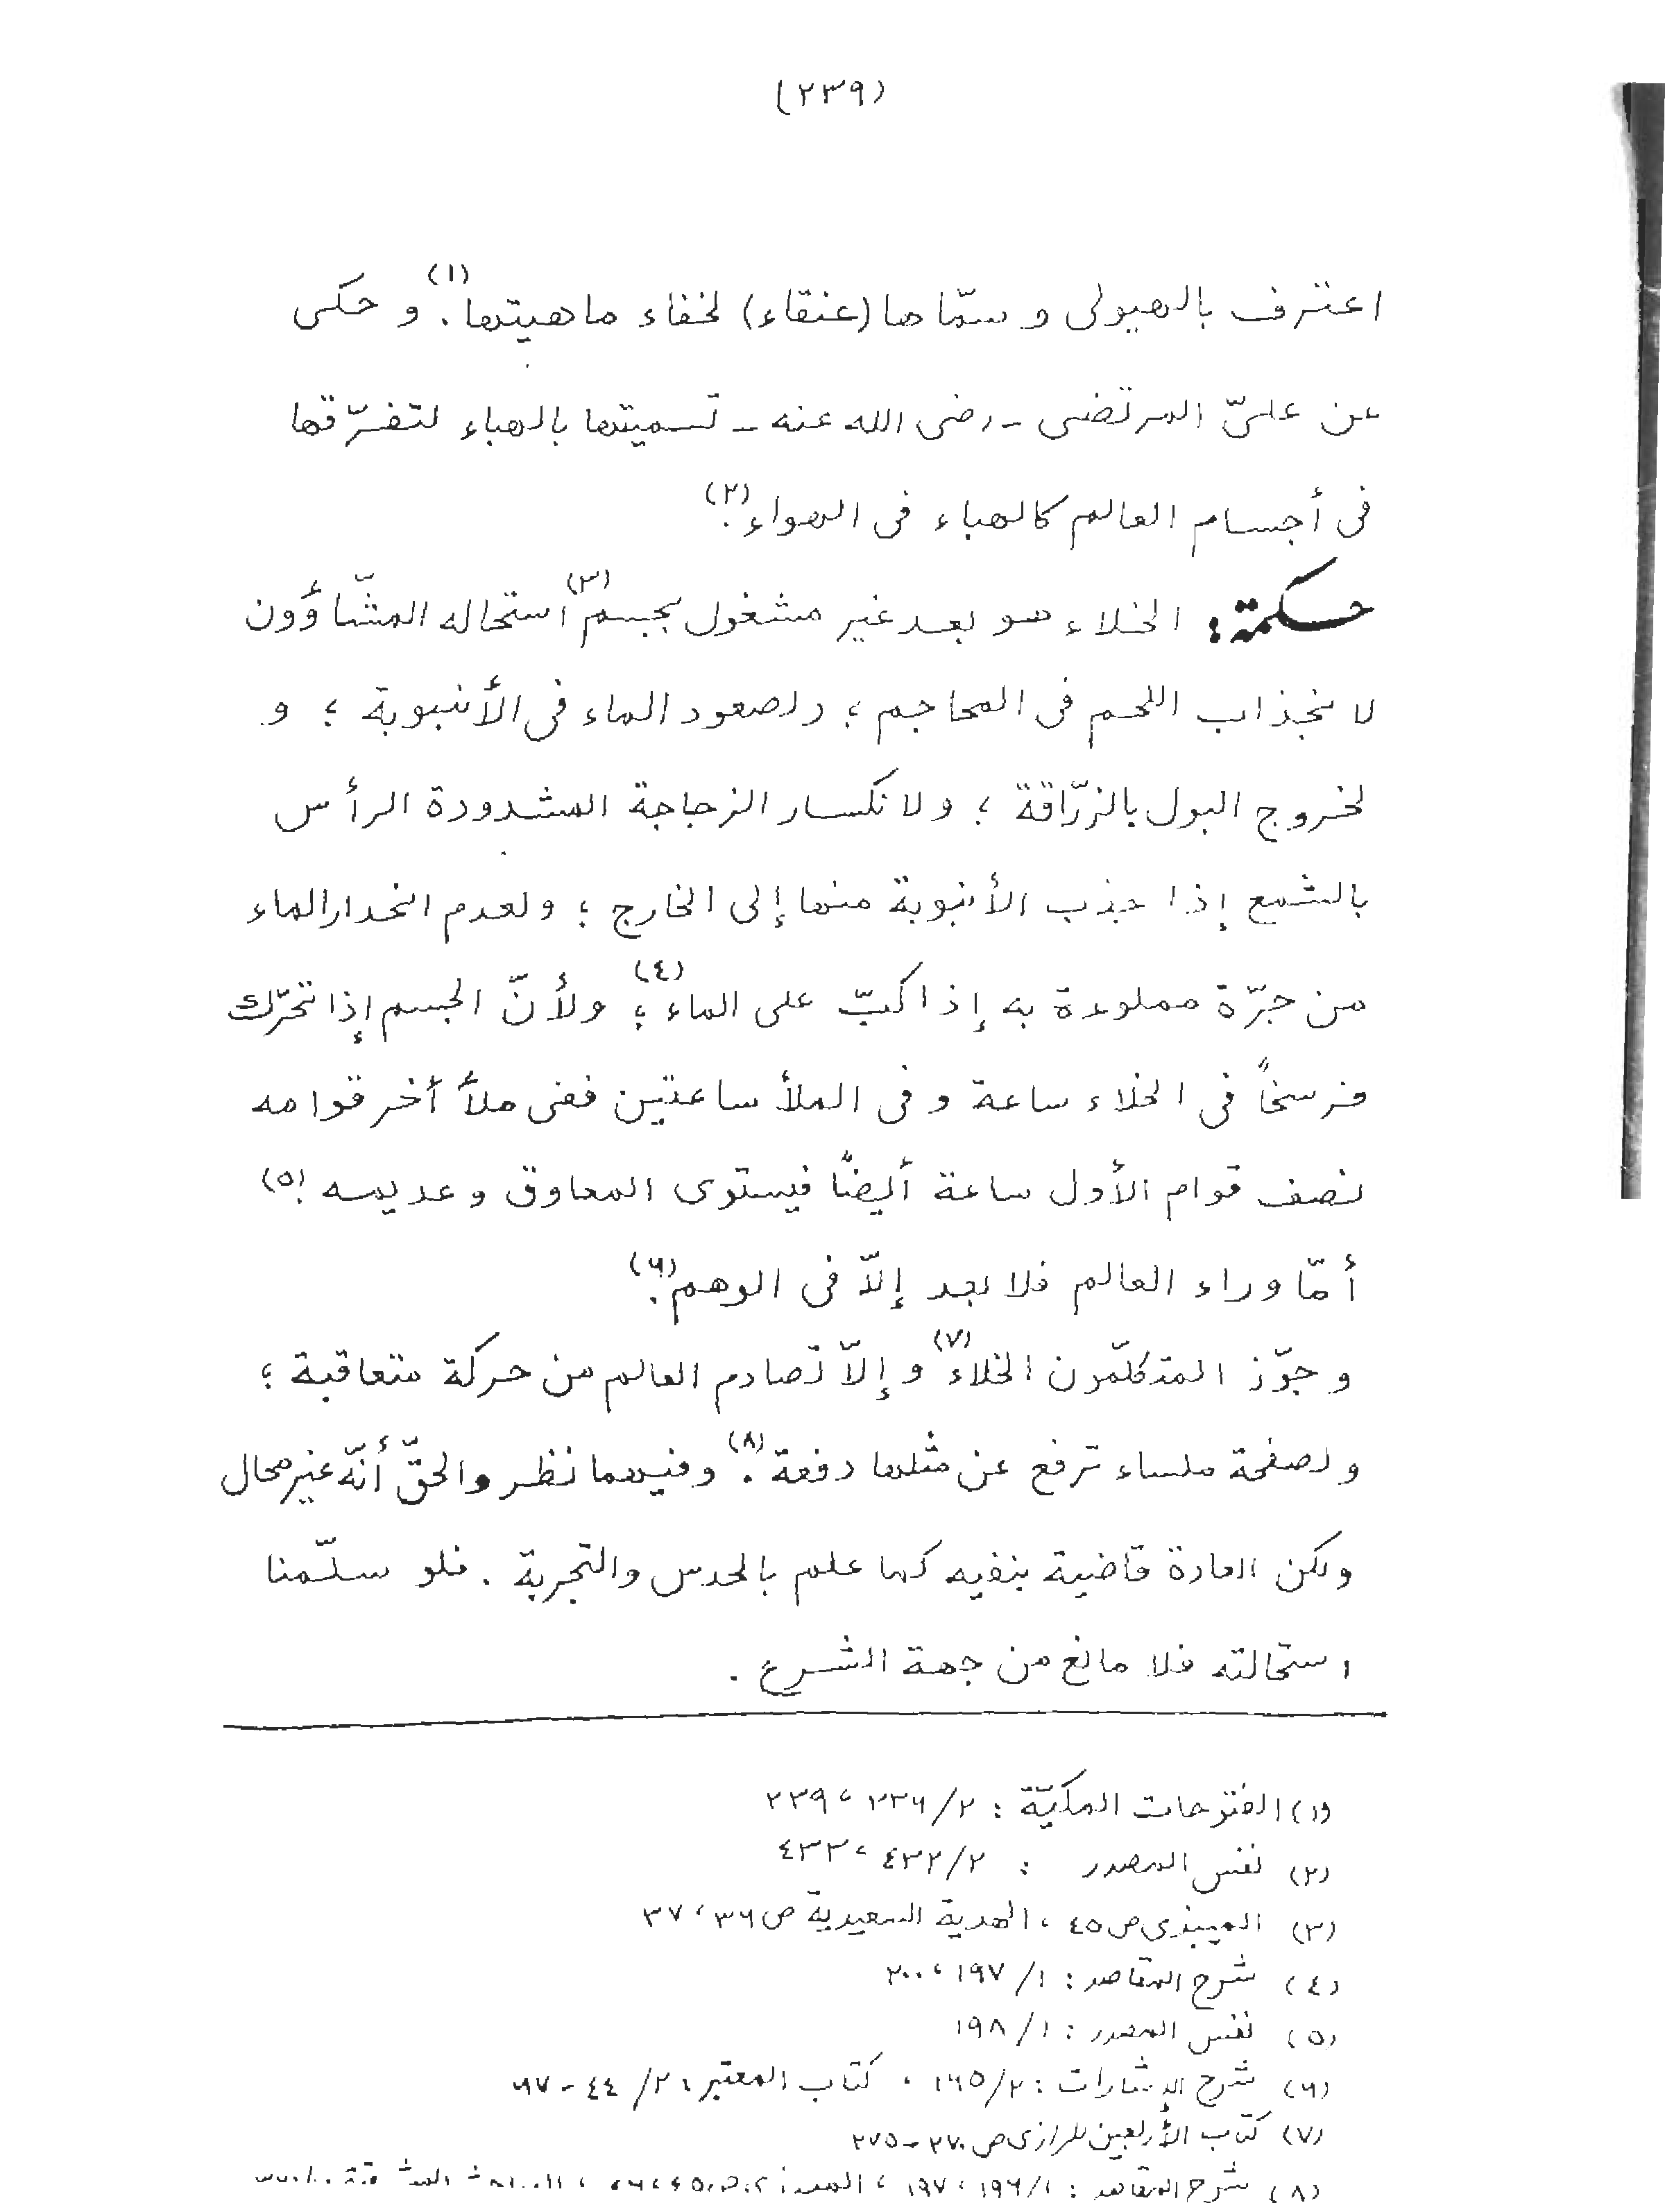 (٢٣٩)
اعترف بالهيولى و سمّاها (عنقاء) لخفاء ماهيتها(١). و حكى
عن علىّ المرتضى - رضى الله عنه - تسميتها بالهباء لتفرّقها
فى أجسام العالم كالهباء فى الهواء(٢).
حكمة: الخلاء هو بعد غير مشغول بجسم(٣) استحاله المشّاؤون
لانجذاب اللحم فى المحاجم ؛ ولصعود الماء فى الأنبوبة ؛ و
لخروج البول بالزرّاقة ؛ ولانكسار الزجاجة المشدودة الرأس
بالشمع إذا جذب الأنبوبة منها إلى الخارج ؛ ولعدم انحدار الماء
من جرّة مملوءة به إذا كبّ على الماء(٤) ؛ ولأنّ الجسم إذا تحرّك
فرسخاً فى الخلاء ساعة و فى الملأ ساعتين ففى ملأ أخر قوامه
نصف قوام الأول ساعة أيضًا فيستوى المعاوق و عديمه (٥).
أمّا وراء العالم فلا بعد إلاّ فى الوهم(٦).
و جوّز المتكلّمون الخلاء(٧) و إلاّ تصادم العالم من حركة متعاقبة ؛
و لصفحة ملساء ترفع عن مثلها دفعة(٨). و فيهما نظر والحقّ أنّه غير محال
ولكن العادة قاضية بنفيه كما علم بالحدس والتجربة . فلو سلّمنا
استحالته فلا مانع من جهة الشرع .
(١) الفتوحات المكيّة : ٢/ ٢٣٦، ٢٣٩
(٢) نفس المصدر : ٢/ ٤٣٢، ٤٣٣
(٣) الميبذى ص ٤٥ ، الهدية السعيدية ص ٣٦، ٣٧
(٤) شرح المقاصد : ١/ ١٩٧، ٢٠٠
(٥) نفس المصدر : ١/ ١٩٨
(٦) شرح الإشارات : ٢/ ١٦٥ ، كتاب المعتبر : ٢/ ٤٤ - ٦٧
(٧) كتاب الأربعين للرازى ص ٢٧٠ - ٢٧٥
(٨) شرح المقاصد : ١/ ١٩٦، ١٩٧ ،